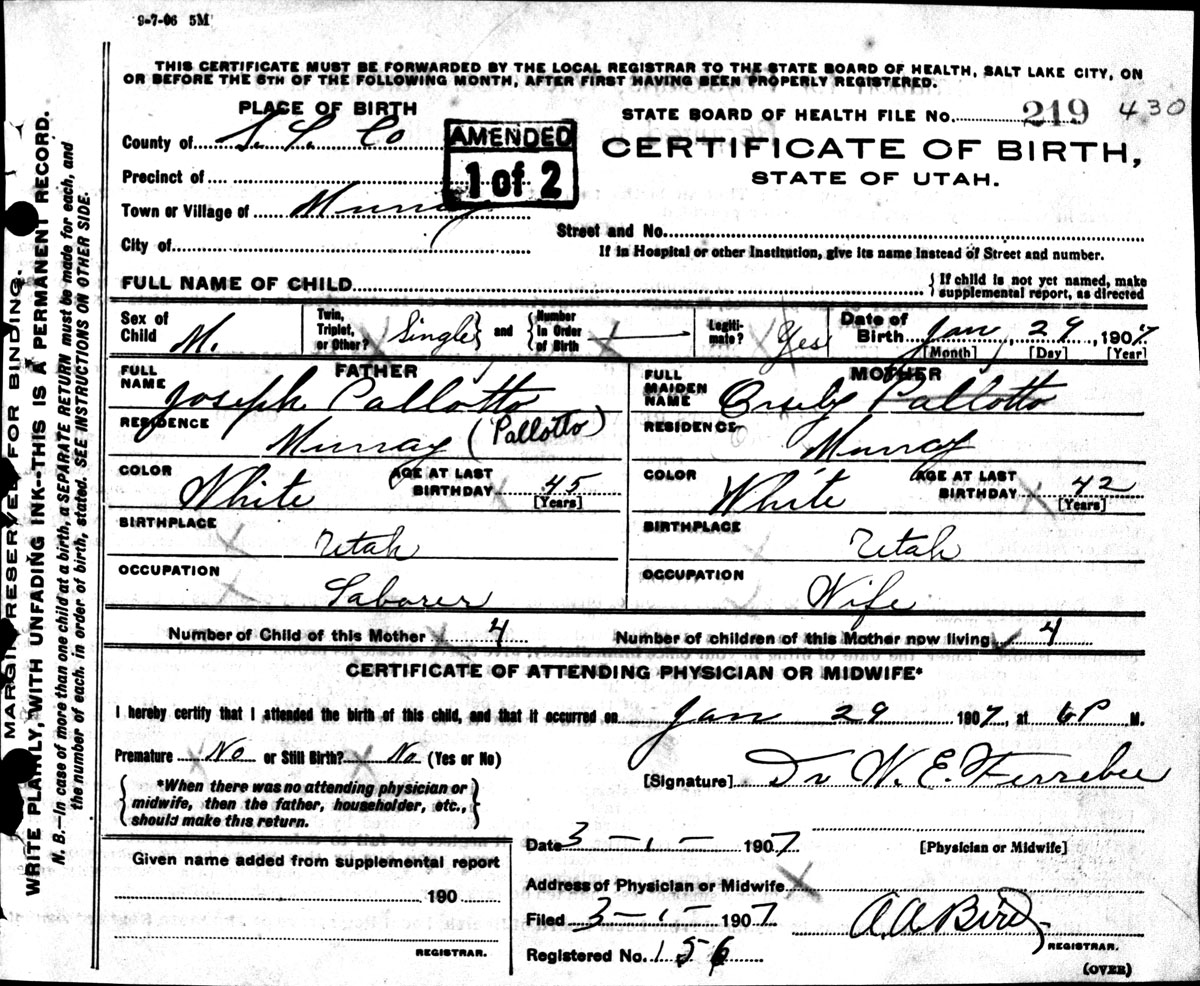 9-7-06 5M
THIS CERTIFICATE MUST BE FORWARDED BY THE LOCAL REGISTRAR TO THE STATE BOARD OF HEALTH, SALT LAKE CITY, ON
OR BEFORE THE 5TH OF THE FOLLOWING MONTH, AFTER FIRST HAVING BEEN PROPERLY REGISTERED.
PLACE OF BIRTH
STATE BOARD OF HEALTH FILE No. 219 430
County of S. L. Co
AMENDED
1 of 2
CERTIFICATE OF BIRTH,
STATE OF UTAH.
Precinct of
Town or Village of Murray
Street and No.
City of
If in Hospital or other Institution, give its name instead of Street and number.
FULL NAME OF CHILD
{ If child is not yet named, make
supplemental report, as directed
Sex of Child M.
Twin, Triplet, or Other? Single } and { Number in Order of Birth
Legitimate? Yes
Date of Birth Jan, 29, 1907
[Month] [Day] [Year]
FATHER
FULL NAME Joseph Pallotto
RESIDENCE Murray (Pallotto)
COLOR White AGE AT LAST BIRTHDAY 45 [Years]
BIRTHPLACE Utah
OCCUPATION Laborer
MOTHER
FULL MAIDEN NAME Pallotto
RESIDENCE Murray
COLOR White AGE AT LAST BIRTHDAY 42 [Years]
BIRTHPLACE Utah
OCCUPATION Wife
Number of Child of this Mother 4 Number of children of this Mother now living 4
CERTIFICATE OF ATTENDING PHYSICIAN OR MIDWIFE*
I hereby certify that I attended the birth of this child, and that it occurred on Jan 29 1907, at 6P M.
Premature No or Still Birth? No (Yes or No)
[Signature] Dr W. E. Ferrebee
{ *When there was no attending physician or
midwife, then the father, householder, etc.,
should make this return. }
Date 3-1-1907
[Physician or Midwife]
Given name added from supplemental report
190
REGISTRAR.
Address of Physician or Midwife
Filed 3-1-1907 A. A. Bird
REGISTRAR.
Registered No. 156
(OVER)
MARGIN RESERVED FOR BINDING.
WRITE PLAINLY, WITH UNFADING INK--THIS IS A PERMANENT RECORD.
N. B.—In case of more than one child at a birth, a SEPARATE RETURN must be made for each, and
the number of each, in order of birth, stated. SEE INSTRUCTIONS ON OTHER SIDE.